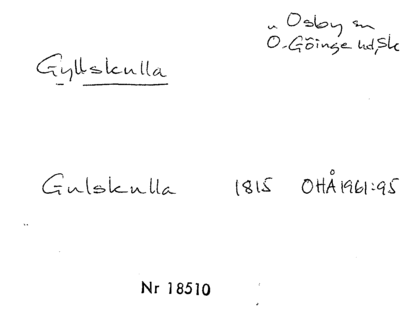 Osby sn
Ö. Göinge hd, Sk
Gyllskulla
Gulskulla 1815 OHÅ 1961:95
Nr 18510